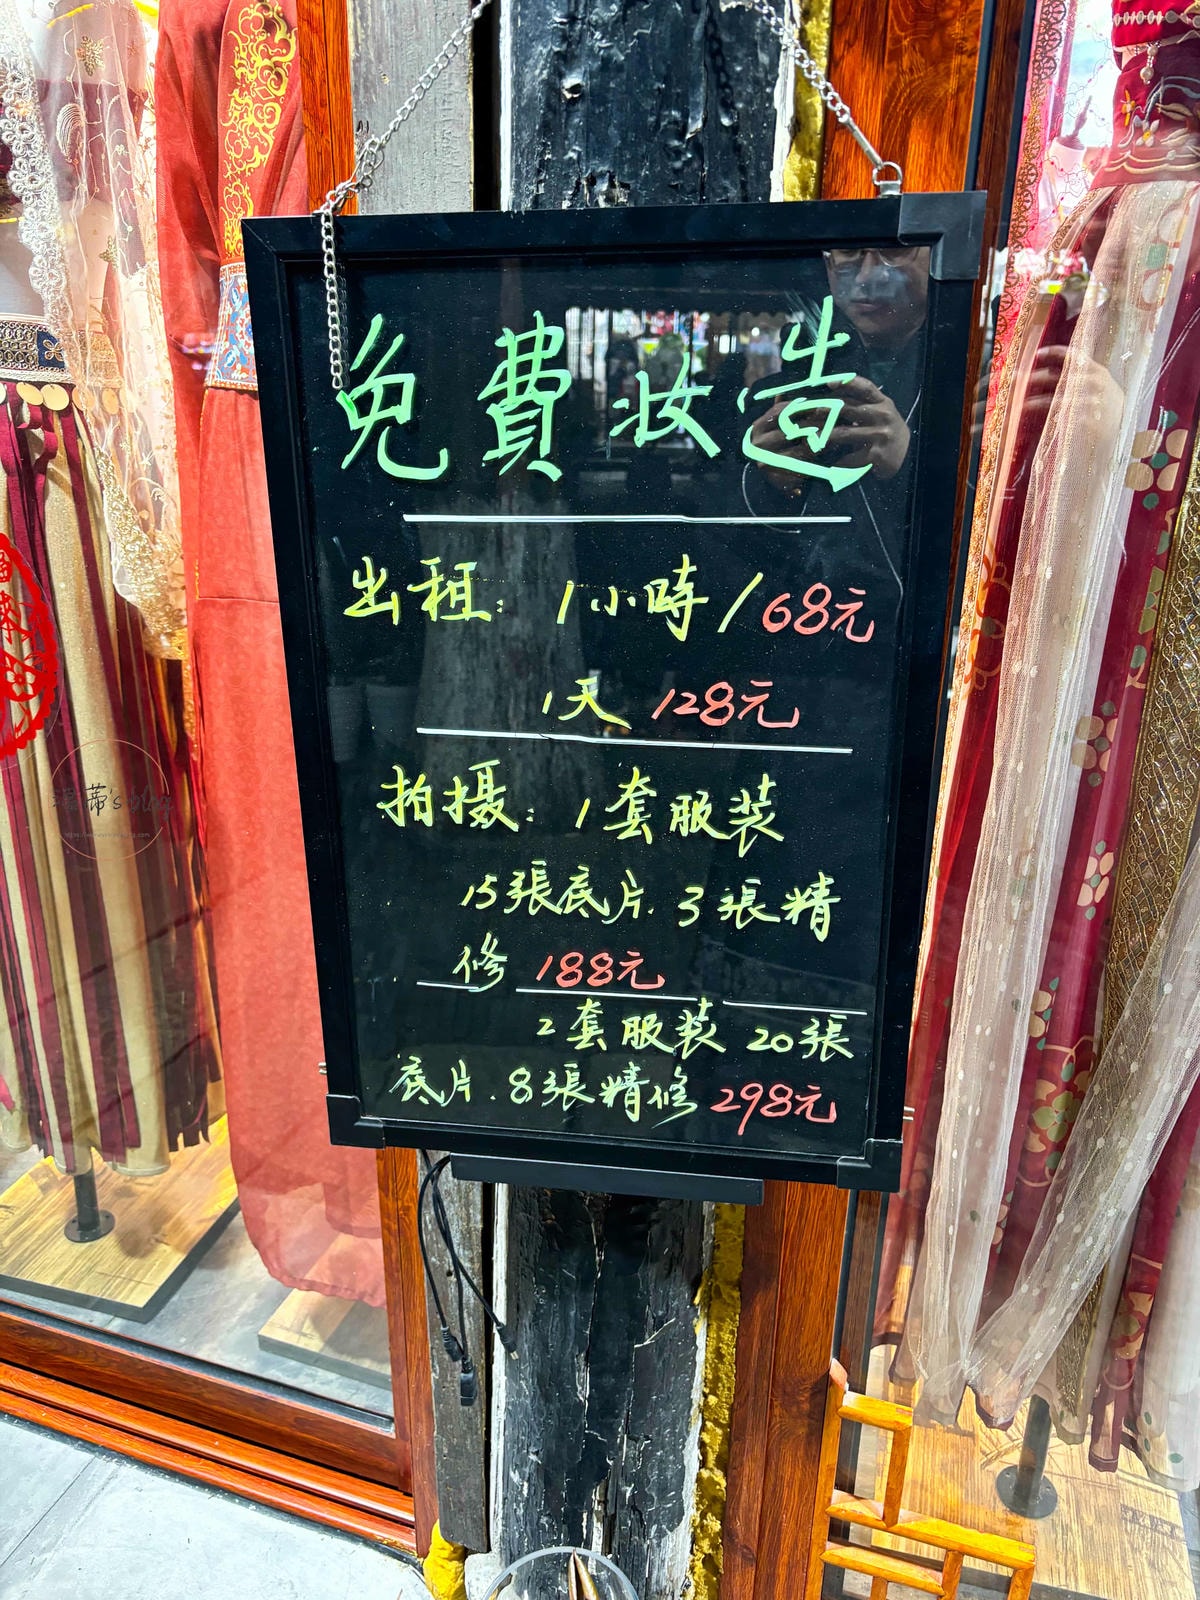 免費妝造
出租：1小時/68元
1天 128元
拍摄：1套服装
15張底片.3張精
修 188元
2套服装 20張
底片.8張精修298元
蒂's blog